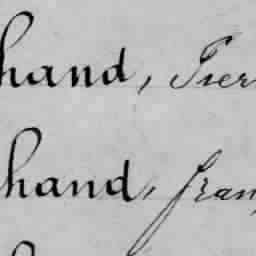 hand, Pier
hand, fran